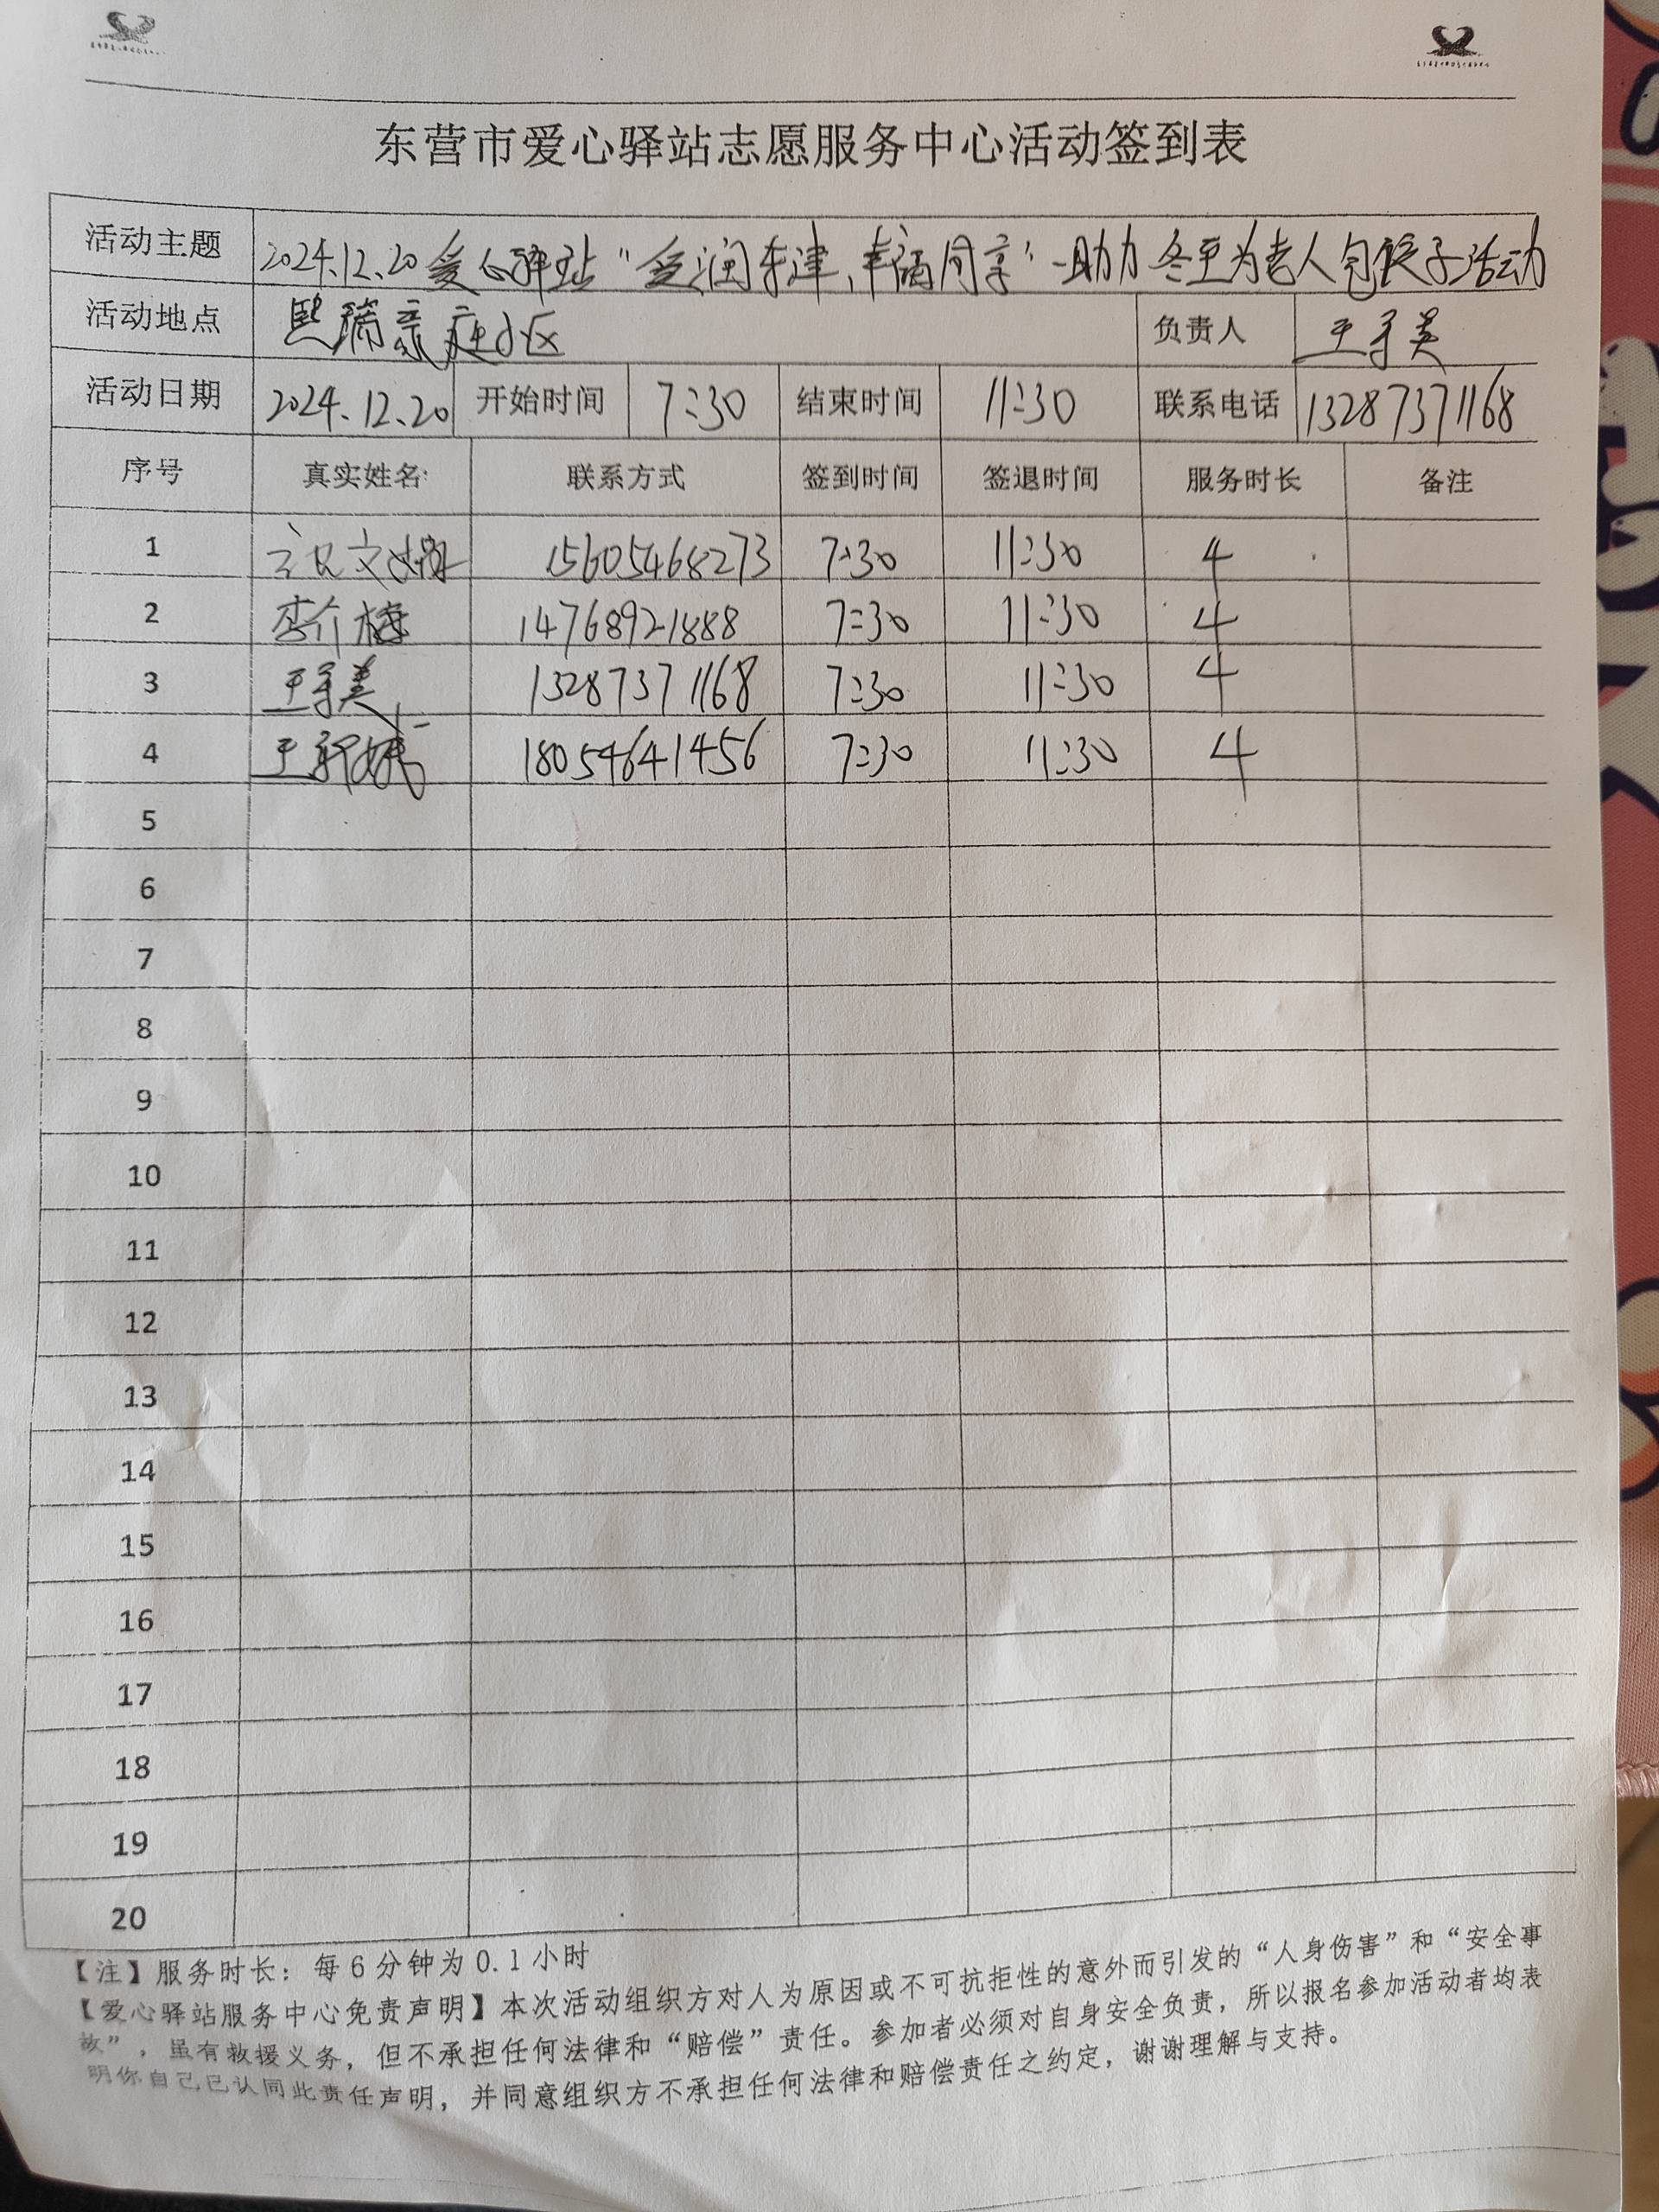 东营市爱心驿站志愿服务中心活动签到表
活动主题 2024.12.20 爱心驿站“爱润东津,幸福同享”-助力冬至为老人包饺子活动
活动地点 熙瑞亲庭小区 负责人 王寻美
活动日期 2024.12.20 开始时间 7:30 结束时间 11:30 联系电话 13287371168
序号 真实姓名 联系方式 签到时间 签退时间 服务时长 备注
1 文 15605468273 7:30 11:30 4
2 李介梅 14768921888 7:30 11:30 4
3 王寻美 13287371168 7:30 11:30 4
4 王 18054641456 7:30 11:30 4
5
6
7
8
9
10
11
12
13
14
15
16
17
18
19
20
【注】服务时长：每6分钟为0.1小时
【爱心驿站服务中心免责声明】本次活动组织方对人为原因或不可抗拒性的意外而引发的“人身伤害”和“安全事
故”，虽有救援义务，但不承担任何法律和“赔偿”责任。参加者必须对自身安全负责，所以报名参加活动者均表
明你自己已认同此责任声明，并同意组织方不承担任何法律和赔偿责任之约定，谢谢理解与支持。